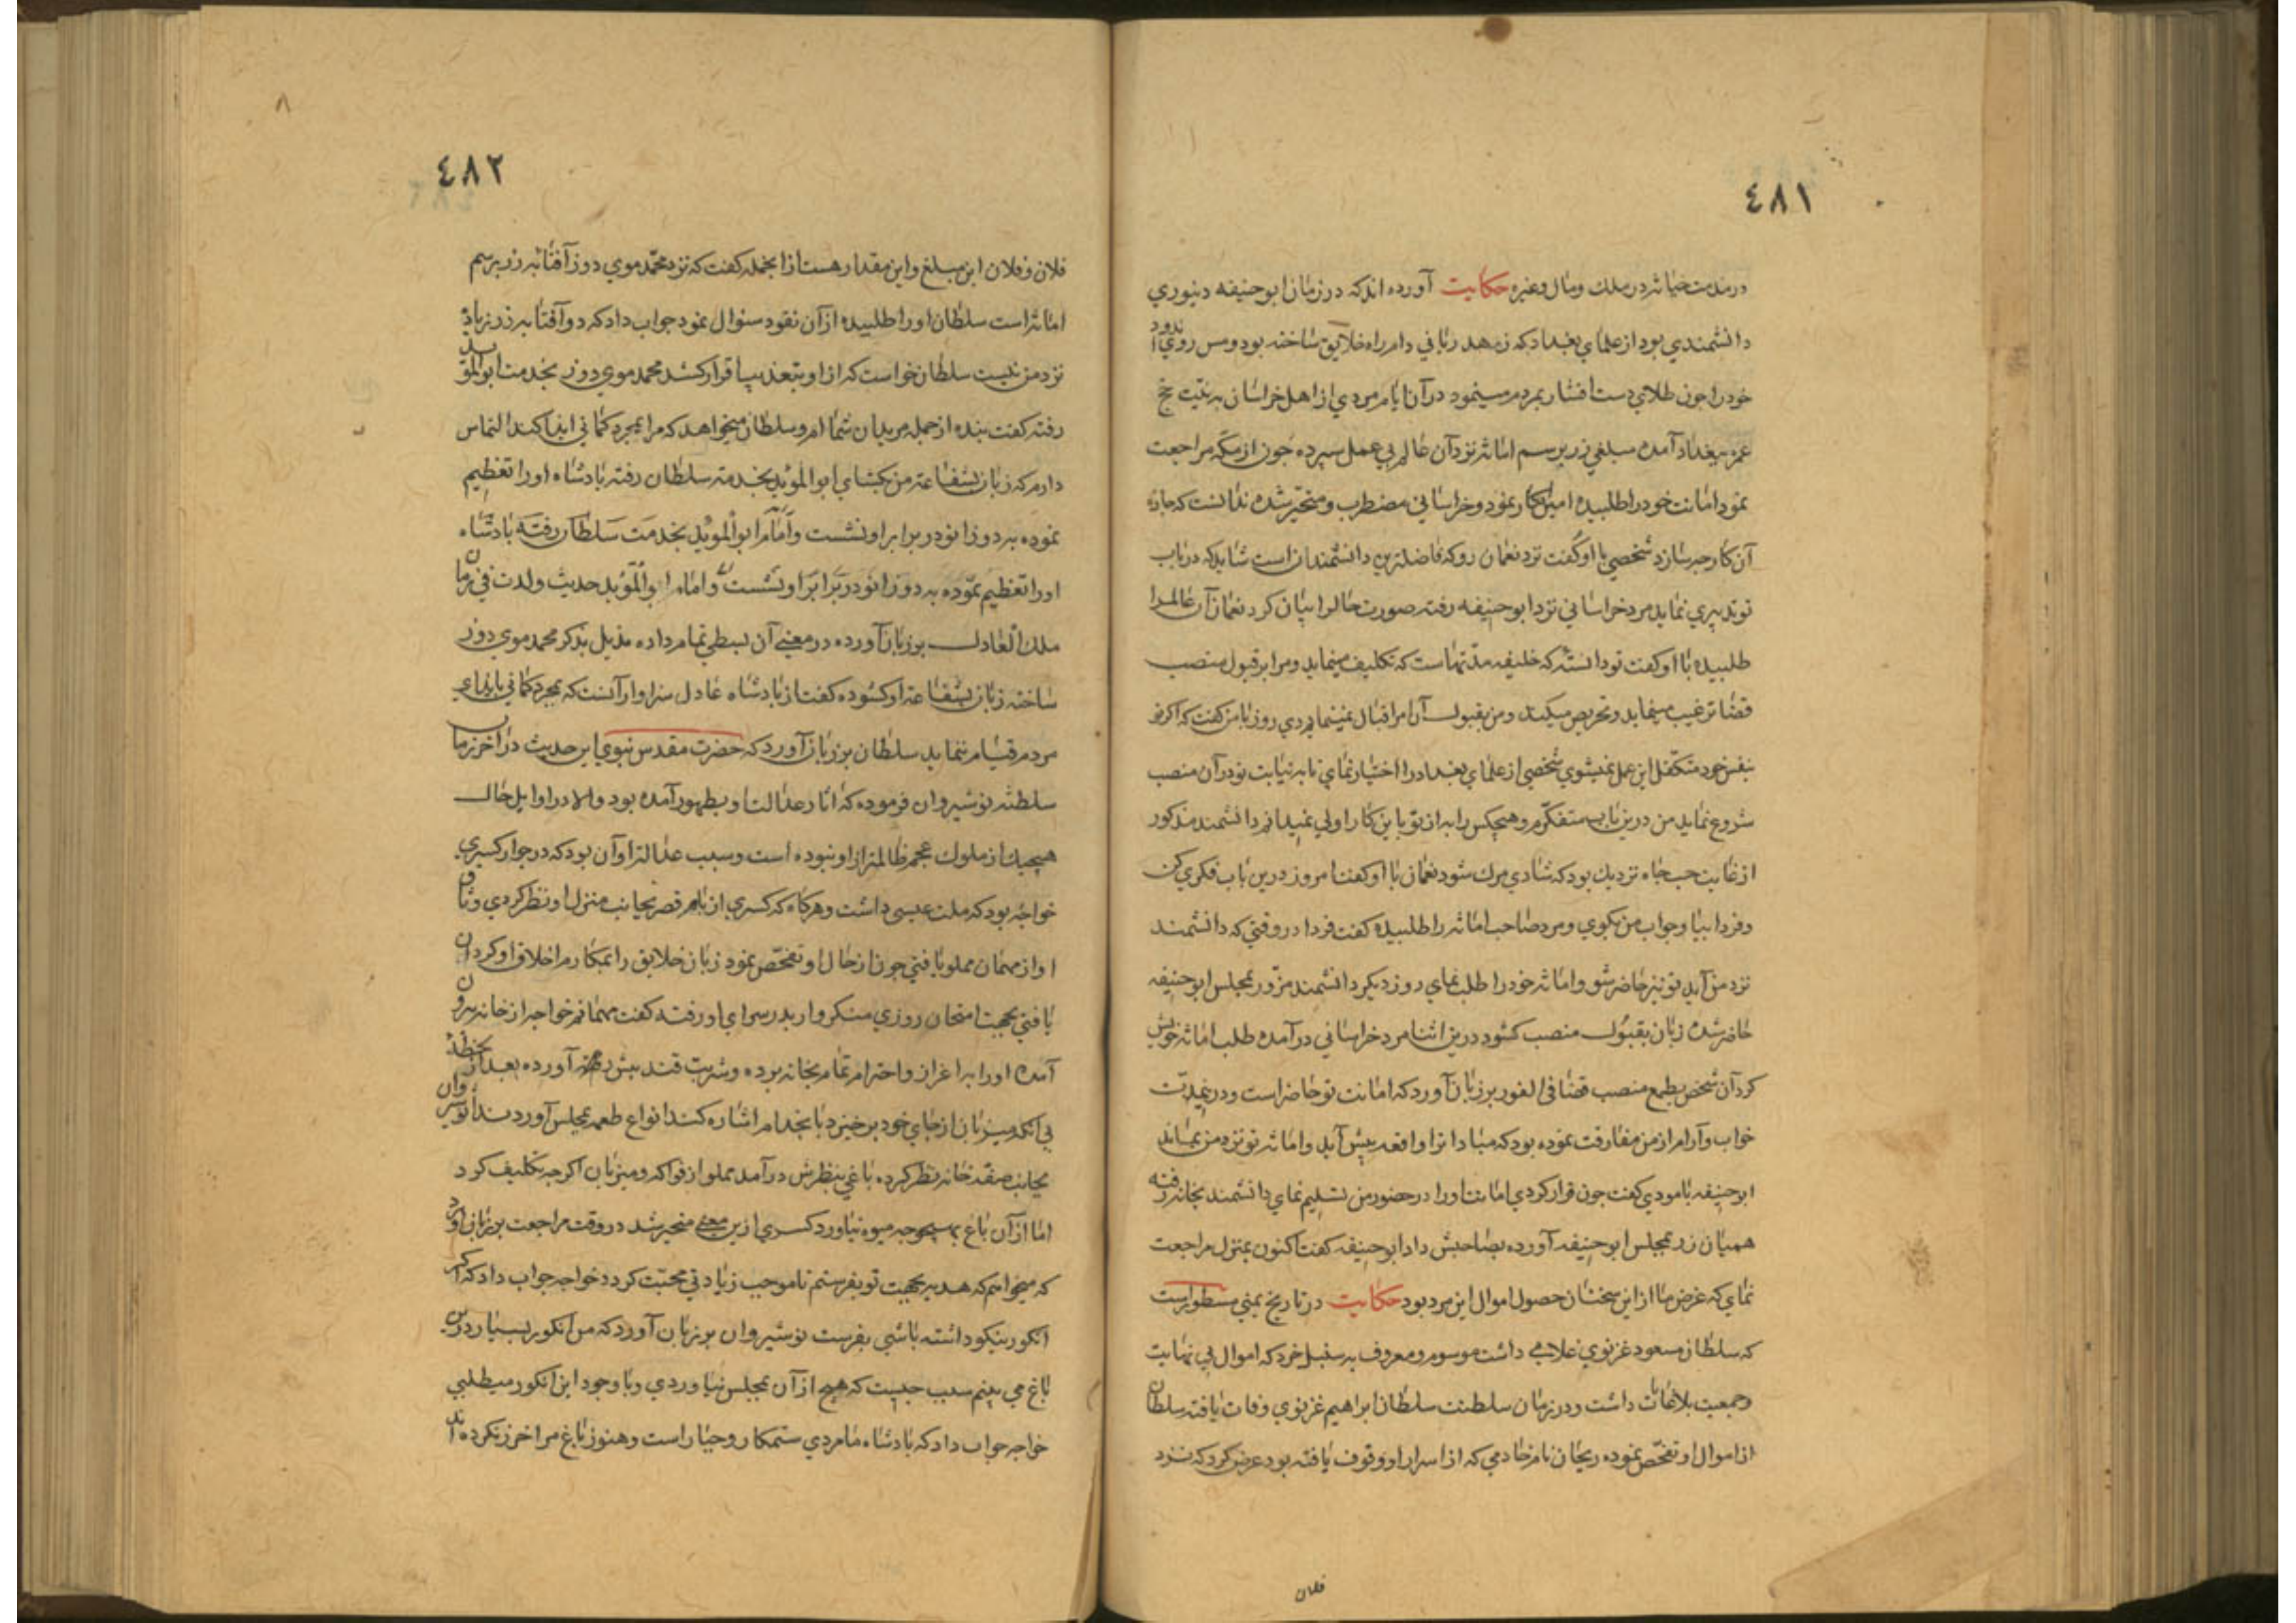 ٤٨١
در مذمت خیانة در ملك ومال وغیره حکایت آورده اند که در زمان ابو حنیفه دینوري
دانشمندي بود از علماي بغداد که زهد ریائي دام راه خلایق ساخته بود ومس روي اندود
خود را چون طلاي دست افشار بمردم مینمود در آن ایام مردي از اهل خراسان به نیّت حج
عمره ببغداد آمده مبلغي زر برسم امانة نزد آن عالم بي عمل سپرده چون از مکّه مراجعت
نمود امانت خود را طلبیده امین انکار نمود وخراساني مضطرب ومتحیّر شده ندانست که چارهٔ
آن کار چه سازد شخصي با او گفت نزد نعمان رو که فاضلترین دانشمندان است شاید که در باب
تو تدبیري نماید مرد خراساني نزد ابو حنیفه رفته صورت حال را بیان کرد نعمان آن عالم را
طلبیده با او گفت تو دانستهٔ که خلیفه مدّتهاست که تکلیف مینماید ومرا بر قبول منصب
قضا ترغیب مینماید وتحریص میکند ومن بقبول آن امر اقبال نمینمایم دي روز با من گفت که اگر تو
بنفس خود متکفّل این عمل نمیشوي شخصي از علماي بغداد را اختیار نماي تا به نیابت تو در آن منصب
شروع نماید من درین باب متفکّرم وهیچکس را به از تو باین کار اولی نمیدانم دانشمند مذکور
از غایت حب جاه نزدیك بود که شادي مرك شود نعمان با او گفت امروز درین باب فکري کن
وفردا بیا وجواب من بگوي ومرد صاحب امانة را طلبیده گفت فردا در وقتي که دانشمند
نزد من آید تو نیز حاضر شو وامانة خود را طلب نماي روز دیگر دانشمند مزوّر بمجلس ابو حنیفه
حاضر شده زبان بقبول منصب گشود درین اثنا مرد خراساني در آمده طلب امانة خویش
کرد آن شخص بطمع منصب قضا في الفور بر زبان آورد که امانت تو حاضر است ودرینمدّت
خواب وآرام از من مفارقت نموده بود که مبادا ترا واقعه پیش آید وامانة تو نزد من بماند
ابو حنیفه با مودي گفت چون قرار کردي امانت او را در حضور من تسلیم نماي دانشمند بخانه رفته
همیان زر بمجلس ابو حنیفه آورده بصاحبش داد ابو حنیفه گفت اکنون بمنزل مراجعت
نماي که غرض ما از این سخنان حصول اموال این مرد بود حکایت در تاریخ یمني مسطور است
که سلطان مسعود غزنوي غلامي داشت موسوم ومعروف به سنبل خود که اموال بي نهایت
وجمعیت بلا غایات داشت ودر زمان سلطنت سلطان ابراهیم غزنوي وفات یافته سلطان
از اموال او تفحّص نموده ریحان نام خادمي که از اسرار او وقوف یافته بود عرض کرد که نزد
فلان
٤٨٢
فلان وفلان این مبلغ واین مقدار هست از انجمله گفت که نزد محمّد موي دوز آفتابه زر برسم
امانة است سلطان او را طلبیده از آن نقود سئوال نمود جواب داد که دو آفتابه زر زیاد
نزد من نیست سلطان خواست که از او بتعذیب اقرار کشد محمد موي دوز بخدمت ابو المؤید
رفته گفت بنده از جمله مریدان شما ام وسلطان میخواهد که مرا بمجرد گماني ایذا کند التماس
دارم که زبان بشفاعة من بگشاي ابو المؤید بخدمة سلطان رفته بادشاه او را تعظیم
نموده به دو زانو در برابر او نشست وامام ابو المؤید بخدمت سلطان رفته بادشاه
او را تعظیم نموده به دو زانو در برابر او نشست وامام ابو المؤید حدیث ولدت في زمان
ملك العادل بر زبان آورده در معنی آن بسطي تمام داده مذیل بذکر محمد موي دوز
ساخته زبان بشفاعة او گشوده گفت از بادشاه عادل سزاوار آنست که بمجرد گماني بایذاي
مردم قیام ننماید سلطان بر زبان آورد که حضرت مقدس نبوي این حدیث در آخر زمان
سلطنة نوشیروان فرموده که آثار عدالت او بظهور آمده بود والا در اوایل حال
هیچیك از ملوك عجم ظالمتر از او نبوده است وسبب عدالة او آن بود که در جوار کسري
خواجهٔ بود که ملت عیسی داشت وهرگاه که کسري از بام قصر بجانب منزل او نظر کردي وثاق
او از مهمان مملو یافتي چون از حال او تفحّص نمود زبان خلایق را بمکارم اخلاق او گردان
یافتي بجهت امتحان روزي متنکر وار بدر سراي او رفته گفت مهمانم خواجه از خانه بیرون
آمده او را به اعزاز واحترام تمام بخانه برده وشربت قند پیش آورده بعد از لحظهٔ
بي آنکه میزبان از جاي خود برخیزد یا بخدام اشاره کند انواع طعمه بمجلس آوردند انوشیروان
بجانب صفّه خانه نظر کرده باغي بنظرش در آمد مملو از فواکه ومیزبان اگر چه تکلیف کرد
اما از آن باغ بهیچوجه میوه نیاورد کسري ازین معنی متحیر شد در وقت مراجعت بر زبان آورد
که میخواهم که هدیه بجهت تو بفرستم تا موجب زیادتي محبّت گردد خواجه جواب داد که اگر
انگور نیکو داشته باشي بفرست نوشیروان بر زبان آورد که من انگور بسیار درین
باغ مي بینم سبب چیست که هیچ از آن بمجلس نیاوردي وبا وجود این انگور میطلبي
خواجه جواب داد که بادشاه ما مردي ستمکار وجبّار است وهنوز باغ مرا خرز نکرده اند